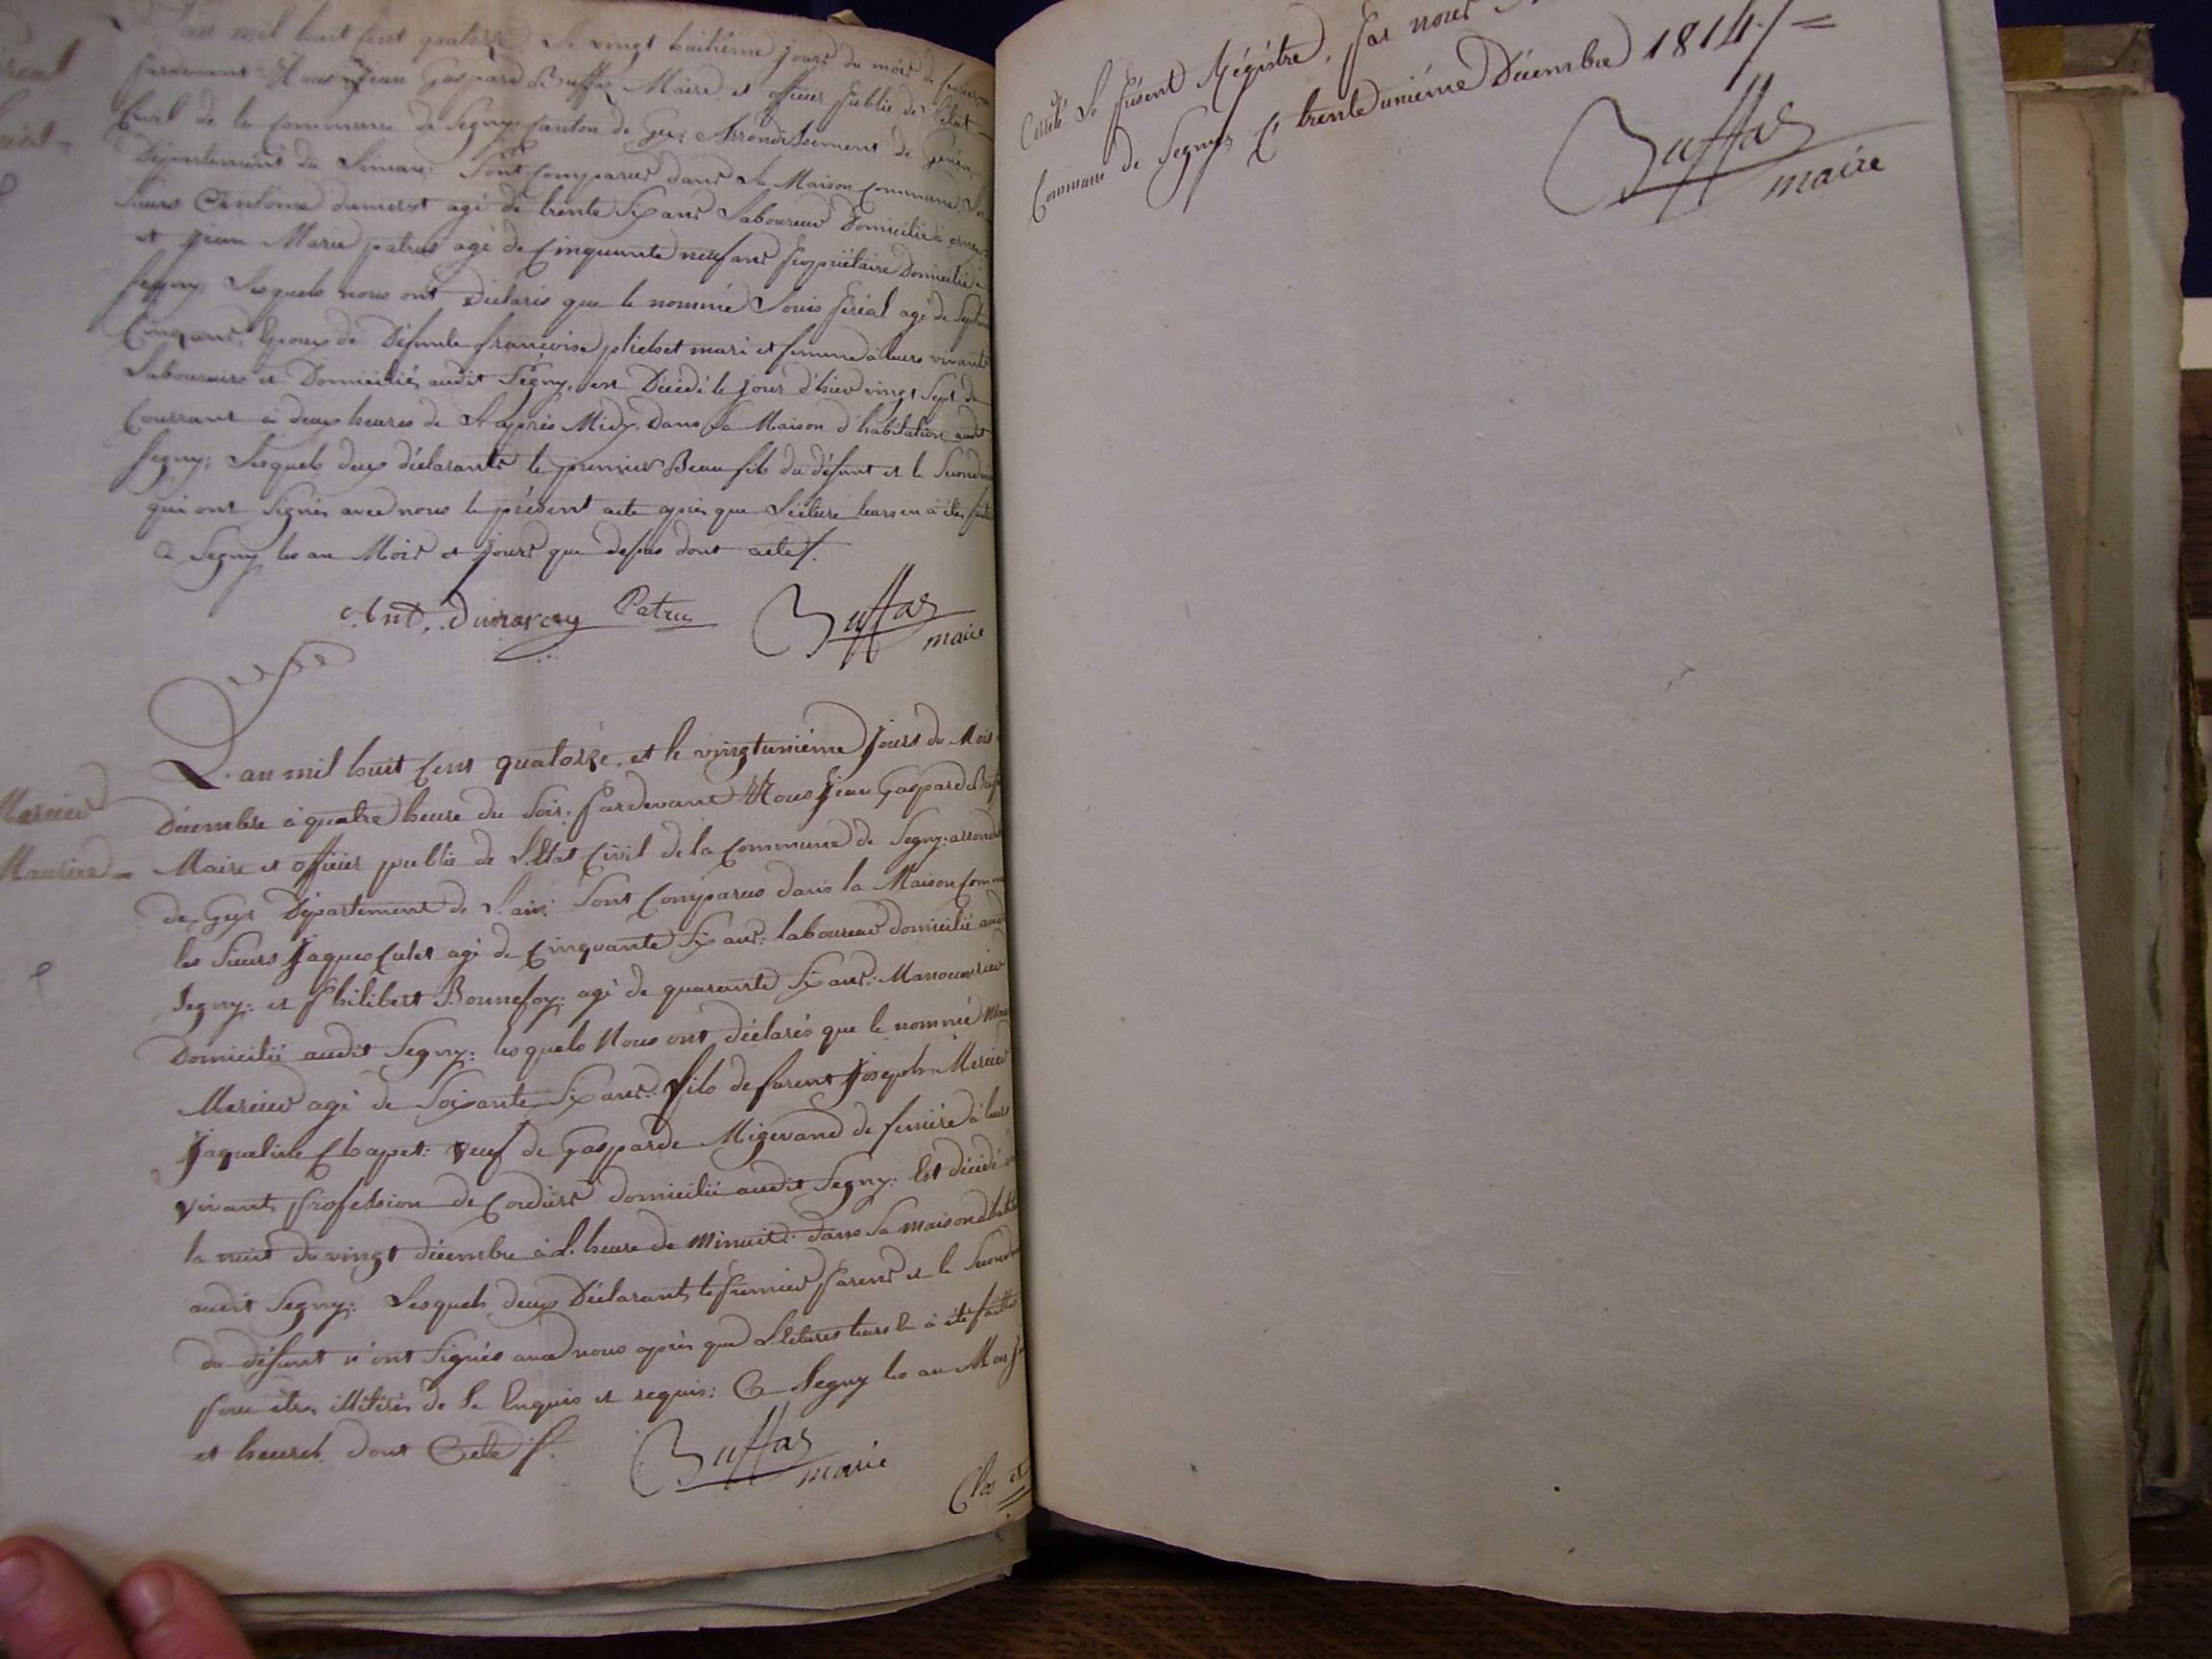 L'an mil huit Cent quatorze Le vingt huitiéme Jours du mois de fevrier
Pardevant Nous Jean Gaspard Buffas Maire et officier Public de L'Etat
Civil de la Commune de Segny Canton de Gex Arrondissement de Genève
Département du Léman: Sont Comparus dans La Maison Commune Les
Sieurs Antoine dumarest agé de trente Six ans Laboureur Domicilié à
et Jean Marie patrus agé de Cinquante neuf ans Propriétaire Domicilié à
Segny, Lesquels nous ont déclarés que le nommé Louis férial agé de Septante
Cinq ans, Epoux de Défunte françoise mari et femme à leurs vivants
Laboureurs et Domiciliés audit Segny, est Décédé le Jour d'hier vingt Sept du
Courrant à deux heures de L'après Midy, Dans Sa Maison d'habitation audit
Segny; Lesquels deux déclarants le premier Beau fils du défunt et le Second
qui ont Signés avec nous le présent acte après que Lécture leurs en à étés faite
à Segny les an Mois et Jours que desus dont acte/.
Ant. Dumarey Patrus Buffas
maire
L'an mil huit Cent quatorze, et le vingtuniéme Jours du Mois
Mercier
Décembre à quatre heure du Soir: Pardevant Nous Jean Gaspard Buffas
Maurice =
Maire et officier public de L'Etat Civil de la Commune de Segny: arrond
de Gex Département de L'ain: Sont Comparus dans la Maison Comm
les Sieurs Jaques Culet agé de Cinquante Six ans: laboureur domicilié aud
Segny: et Philibert Bonnefoy: agé de quarante Six ans: Manoeuvrier
Domicilié audit Segny: lesquels Nous ont déclarés que le nommé Mau
Mercier agé de Soixante Six ans: fils de furent Joseph Mercier
Jaqueline Chapet: veuf de Gasparde Migerand de fenière à leurs
vivants Profession de Cordiers domicilié audit Segny: Est décédé
la nuit du vingt décembre à L'heure de Minuit: dans Sa maison d'habit
audit Segny: Lesquels deux Déclarants le Premier Parent et le Second
du défunt n'ont Signés avec nous après que Lletures leurs En à été faitte
Pour être illitérés de Ce Enquis et requis: à Segny les an Mois
et heures dont Acte/.
Buffas
maire
Clos et
Arrêté Le Présent Régistre, Par nous
Commune de Segny, Ce trente uniéme Décembre 1814./=
Buffas
maire